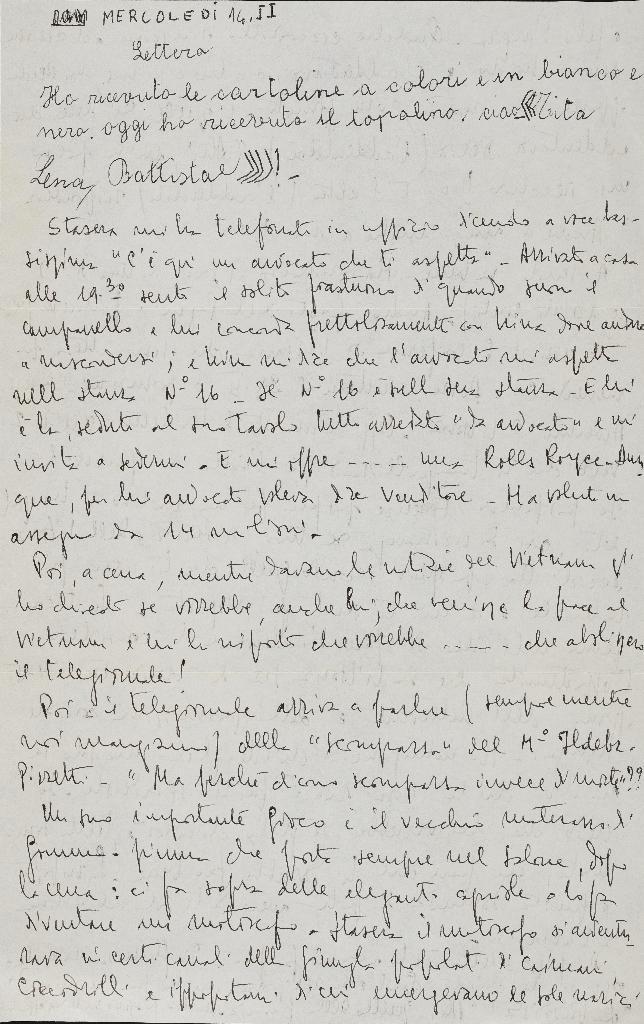 MERCOLEDÌ 14.II
Lettera
Ho ricevuto le cartoline a colori e in bianco e
nero. oggi ho ricevuto il topolino. ciao Zita
Lena, Battista !_
Stasera mi ha telefonato in uffizio dicendo a voce bas-
sissima "C'è qui un avvocato che ti aspetta" - Arrivato a casa
alle 19.30 sento il solito frastuono di quando suona il
campanello e lui concorda frettolosamente con Nina dove andare
a nascondersi; e Nina mi dice che l'avvocato mi aspetta
nella stanza N° 16 - Il N° 16 è sulla sua stanza - E lui
è là, seduto al suo tavolo tutto arredato "da avvocato" e mi
invita a sedermi. E mi offre ----- una Rolls Royce. Dun
que, per lui avvocato voleva dire venditore - Ha voluto un
assegno da 14 milioni.
Poi, a cena, mentre davano le notizie del Vietnam gli
ho chiesto se vorrebbe, anche lui, che venisse la pace al
Vietnam e lui ha risposto che vorrebbe ---- che abolissero
il telegiornale!
Poi il telegiornale arriva a parlare (sempre mentre
noi mangiamo) della "scomparsa" del M° Ildebr.
Pizzetti - "Ma perché dicono scomparsa invece di morte"??
Un suo importante gioco è il vecchio materasso di
gomma-piuma che porta sempre nel salone, dopo
la cena: ci fa sopra delle eleganti capriole o lo fa
diventare un motoscafo. Stasera il motoscafo si avventu
rava in certi canali della giungla popolati di caimani
coccodrilli e ippopotami di cui emergevano le sole narici